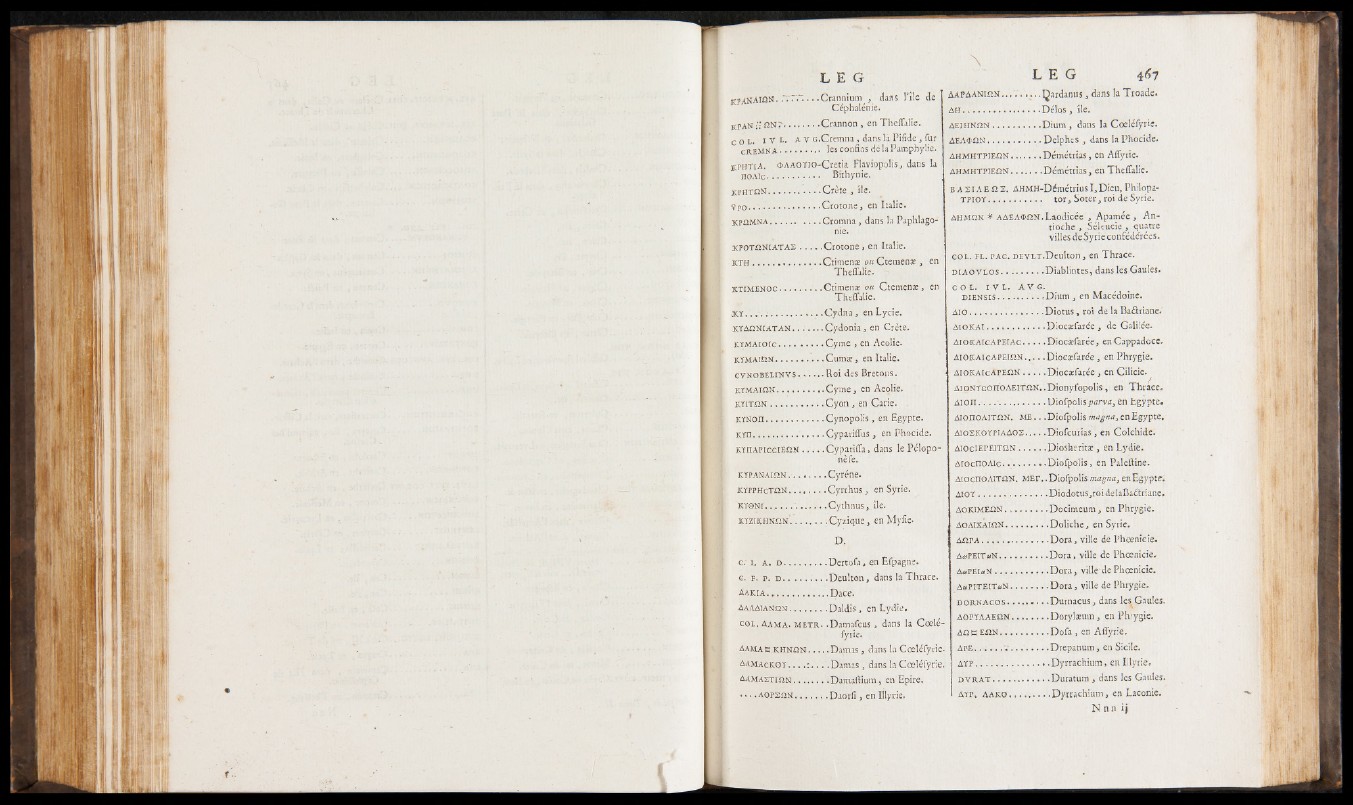 LEG
LEG 467
ΚΡΑΝΑΙΩΝ. .......Crannium , dans l'île de
Céphalénie.
ΚΡΑΝ ΩΝ?........Crannon , en Theſſalie.
COL. IVL. AVG.Cremna , dans la Piſide , ſur
CREMNA........ les confins de la Pamphylie.
ΚΡΗΤΙΑ. ΦΛΑΟΥΙΟ-Cretia Flaviopolis, dans la
ΠΟΛΙC........... Bithynie.
ΚΡΗΤΩΝ..........Crète , île.
ϘΡΟ..............Crotone, en Italie.
ΚΡΩΜΝΑ..........Cromna , dans la Paphlago-
nie.
ΚΡΟΤΩΝΙΑΤΑΣ.....Crotone, en Italie.
ΚΤΗ.............Ctimenæ ou Ctemenæ , en
Theſſalie.
ΚΤΙΜΕΝΟC.........Ctimenæ ou Ctemenæ, en
Theſſalie.
ΚΥ...............Cydna, en Lycie.
ΚΥΔΩΝΙΑΤΑΝ.......Cydonia, en Crète.
ΚΥΜΑΙΟΙC.........Cyme , en Aeolie.
ΚΥΜΑΙΩΝ..........Cumæ, en Italie.
CVNOBELINVS......Roi des Bretons.
ΚΥΜΑΙΩΝ..........Cyme, en Aeolie.
ΚΥΙΤΩΝ...........Cyon , en Carie.
ΚΥΝΟΠ............Cynopolis , en Egypte.
ΚΥΠ..............Cypariſſus , en Phocide.
ΚΥΠΑΡΙCCΙΕΩΝ.....Cypariſſa, dans le Pélopo-
nèſe.
ΚΥΡΑΝΑΙΩΝ........Cyréne.
ΚΥΡΡΗCΤΩΝ........Cyrrhus, en Syrie.
ΚΥΘΝΙ............Cythnus, île.
ΚΥΖΙΚΗΝΩΝ........Cyzique, en Myſie.
D.
C. I. A. D.........Dertoſa, en Eſpagne.
C. F. P. D.........Deulton, dans la Thrace.
ΔΑΚΙΑ............Dace.
ΔΑΛΔΙΑΝΩΝ........Daldis, en Lydie.
COL. ΔΑΜΑ. METR..Damaſcus , dans la Cœlé-
ſyrie.
ΔΑΜΑΣΚΗΝΩΝ.....Damas , dans la Cœléſyrie.
ΔΑΜΑCΚΟΥ........Damas , dans la Cœléſyrie.
ΔΑΜΑΣΤΙΩΝ.......Damaſtium, en Epire.
....ΑΟΡΣΩΝ.......Daorſi , en Illyrie.
ΔΑΡΔΑΝΙΩΝ.......Dardanus, dans la Troade.
ΔΗ...............Délos , île.
ΔΕΙΗΝΩΝ..........Dium, dans la Cœléſyrie.
ΔΕΛΦΩΝ...........Delphes , dans la Phocide.
ΔΗΜΗΤΡΙΕΩΝ.......Démétrias, en Aſſyrie.
ΔΗΜΗΤΡΙΕΩΝ.......Démétrias, en Theſſalie.
ΒΑΣΙΛΕΩΣ. ΔΗΜΗ-Démétrius I, Dieu, Philopa-
ΤΡΙΟΥ........... tor, Soter, roi de Syrie.
ΔΗΜΩΝ * ΑΔΕΛΦΩΝ.Laodicée , Apamée , An-
tioche , Séleucie , quatre
villes de Syrie confédérées.
COL. FL. PAC. DEVLT.Deulton, en Thrace.
DIAOVLOS.........Diablintes, dans les Gaules.
COL. IVL. AVG.
DIENSIS..........Dium , en Macédoine.
ΔΙΟ..............Diotus, roi de la Bactriane.
ΔΙΟΚΑΙ...........Diocæſarée , de Galilée.
ΔΙΟΚΑΙCΑΡΕΙΑC.....Diocæſarée, en Cappadoce.
ΔΙΟΚΑΙCΑΡΕΙΩΝ.....Diocæſarée , en Phrygie.
ΔΙΟΚΑΙCΑΡΕΩΝ.....Diocæſarée , en Cilicie.
ΔΙΟΝΥCΟΠΟΛΕΙΤΩΝ..Dionyſopolis, en Thrace.
ΔΙΟΠ.............Dioſpolis parva, en Egypte.
ΔΙΟΠΟΛΙΤΩΝ. ΜΕ...Dioſpolis magna, en Egypte.
ΔΙΟΣΚΟΥΡΙΑΔΟΣ.....Dioſcurias, en Colchide.
ΔΙΟCΙΕΡΕΙΤΩΝ......Dioſheritæ, en Lydie.
ΔΙΟCΠΟΛΙC.........Dioſpolis, en Paleſtine.
ΔΙΟCΠΟΛΙΤΩΝ. ΜΕΓ..Dioſpolis magna, en Egypte.
ΔΙΟΥ..............Diodotus, roi de la Bactriane.
ΔΟΚΙΜΕΩΝ.........Docimeum, en Phrygie.
ΔΟΛΙΧΑΙΩΝ.........Doliche, en Syrie.
ΔΩΡΑ.............Dora, ville de Phœnicie.
ΔωΡΕΙΤωΝ.........Dora, ville de Phœnicie.
ΔωΡΕΙωΝ..........Dora, ville de Phœnicie.
ΔωΡΙΤΕΙΤωΝ.......Dora, ville de Phrygie.
DORNACOS.........Durnacus, dans les Gaules.
ΔΟΡΥΛΑΕΩΝ........Dorylæum , en Phrygie.
ΔΩΣΕΩΝ..........Doſa, en Aſſyrie.
ΔΡΕ..............Drepanum, en Sicile.
ΔΥΡ..............Dyrrachium, en Illyrie.
DVRAT............Duratum, dans les Gaules.
ΔΥΡ. ΛΑΚΟ.........Dyrrachium, en Laconie.
Nnn ij